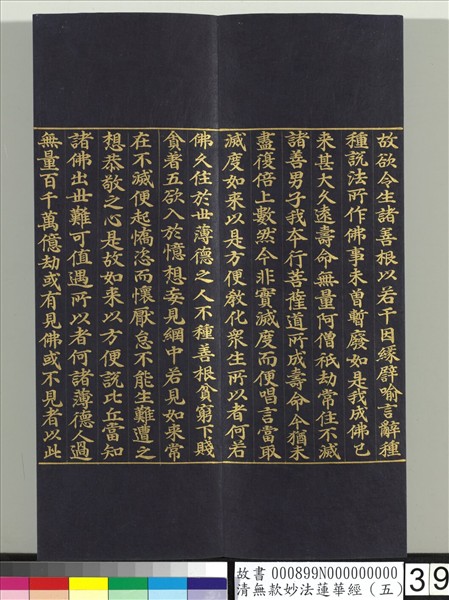 故欲令生諸善根以若干因緣譬喻言辭種
種說法所作佛事未曾暫廢如是我成佛已
来甚大久遠壽命無量阿僧祇劫常住不滅
諸善男子我本行菩薩道所成壽命今猶未
盡復倍上數然今非實滅度而便唱言當取
滅度如来以是方便教化衆生所以者何若
佛久住於世薄德之人不種善根貧窮下賤
貪著五欲入於憶想妄見網中若見如来常
在不滅便起憍恣而懷厭怠不能生難遭之
想恭敬之心是故如来以方便說比丘當知
諸佛出世難可值遇所以者何諸薄德人過
無量百千萬億劫或有見佛或不見者以此
故書 000899N000000000
清無款妙法蓮華經（五）
39